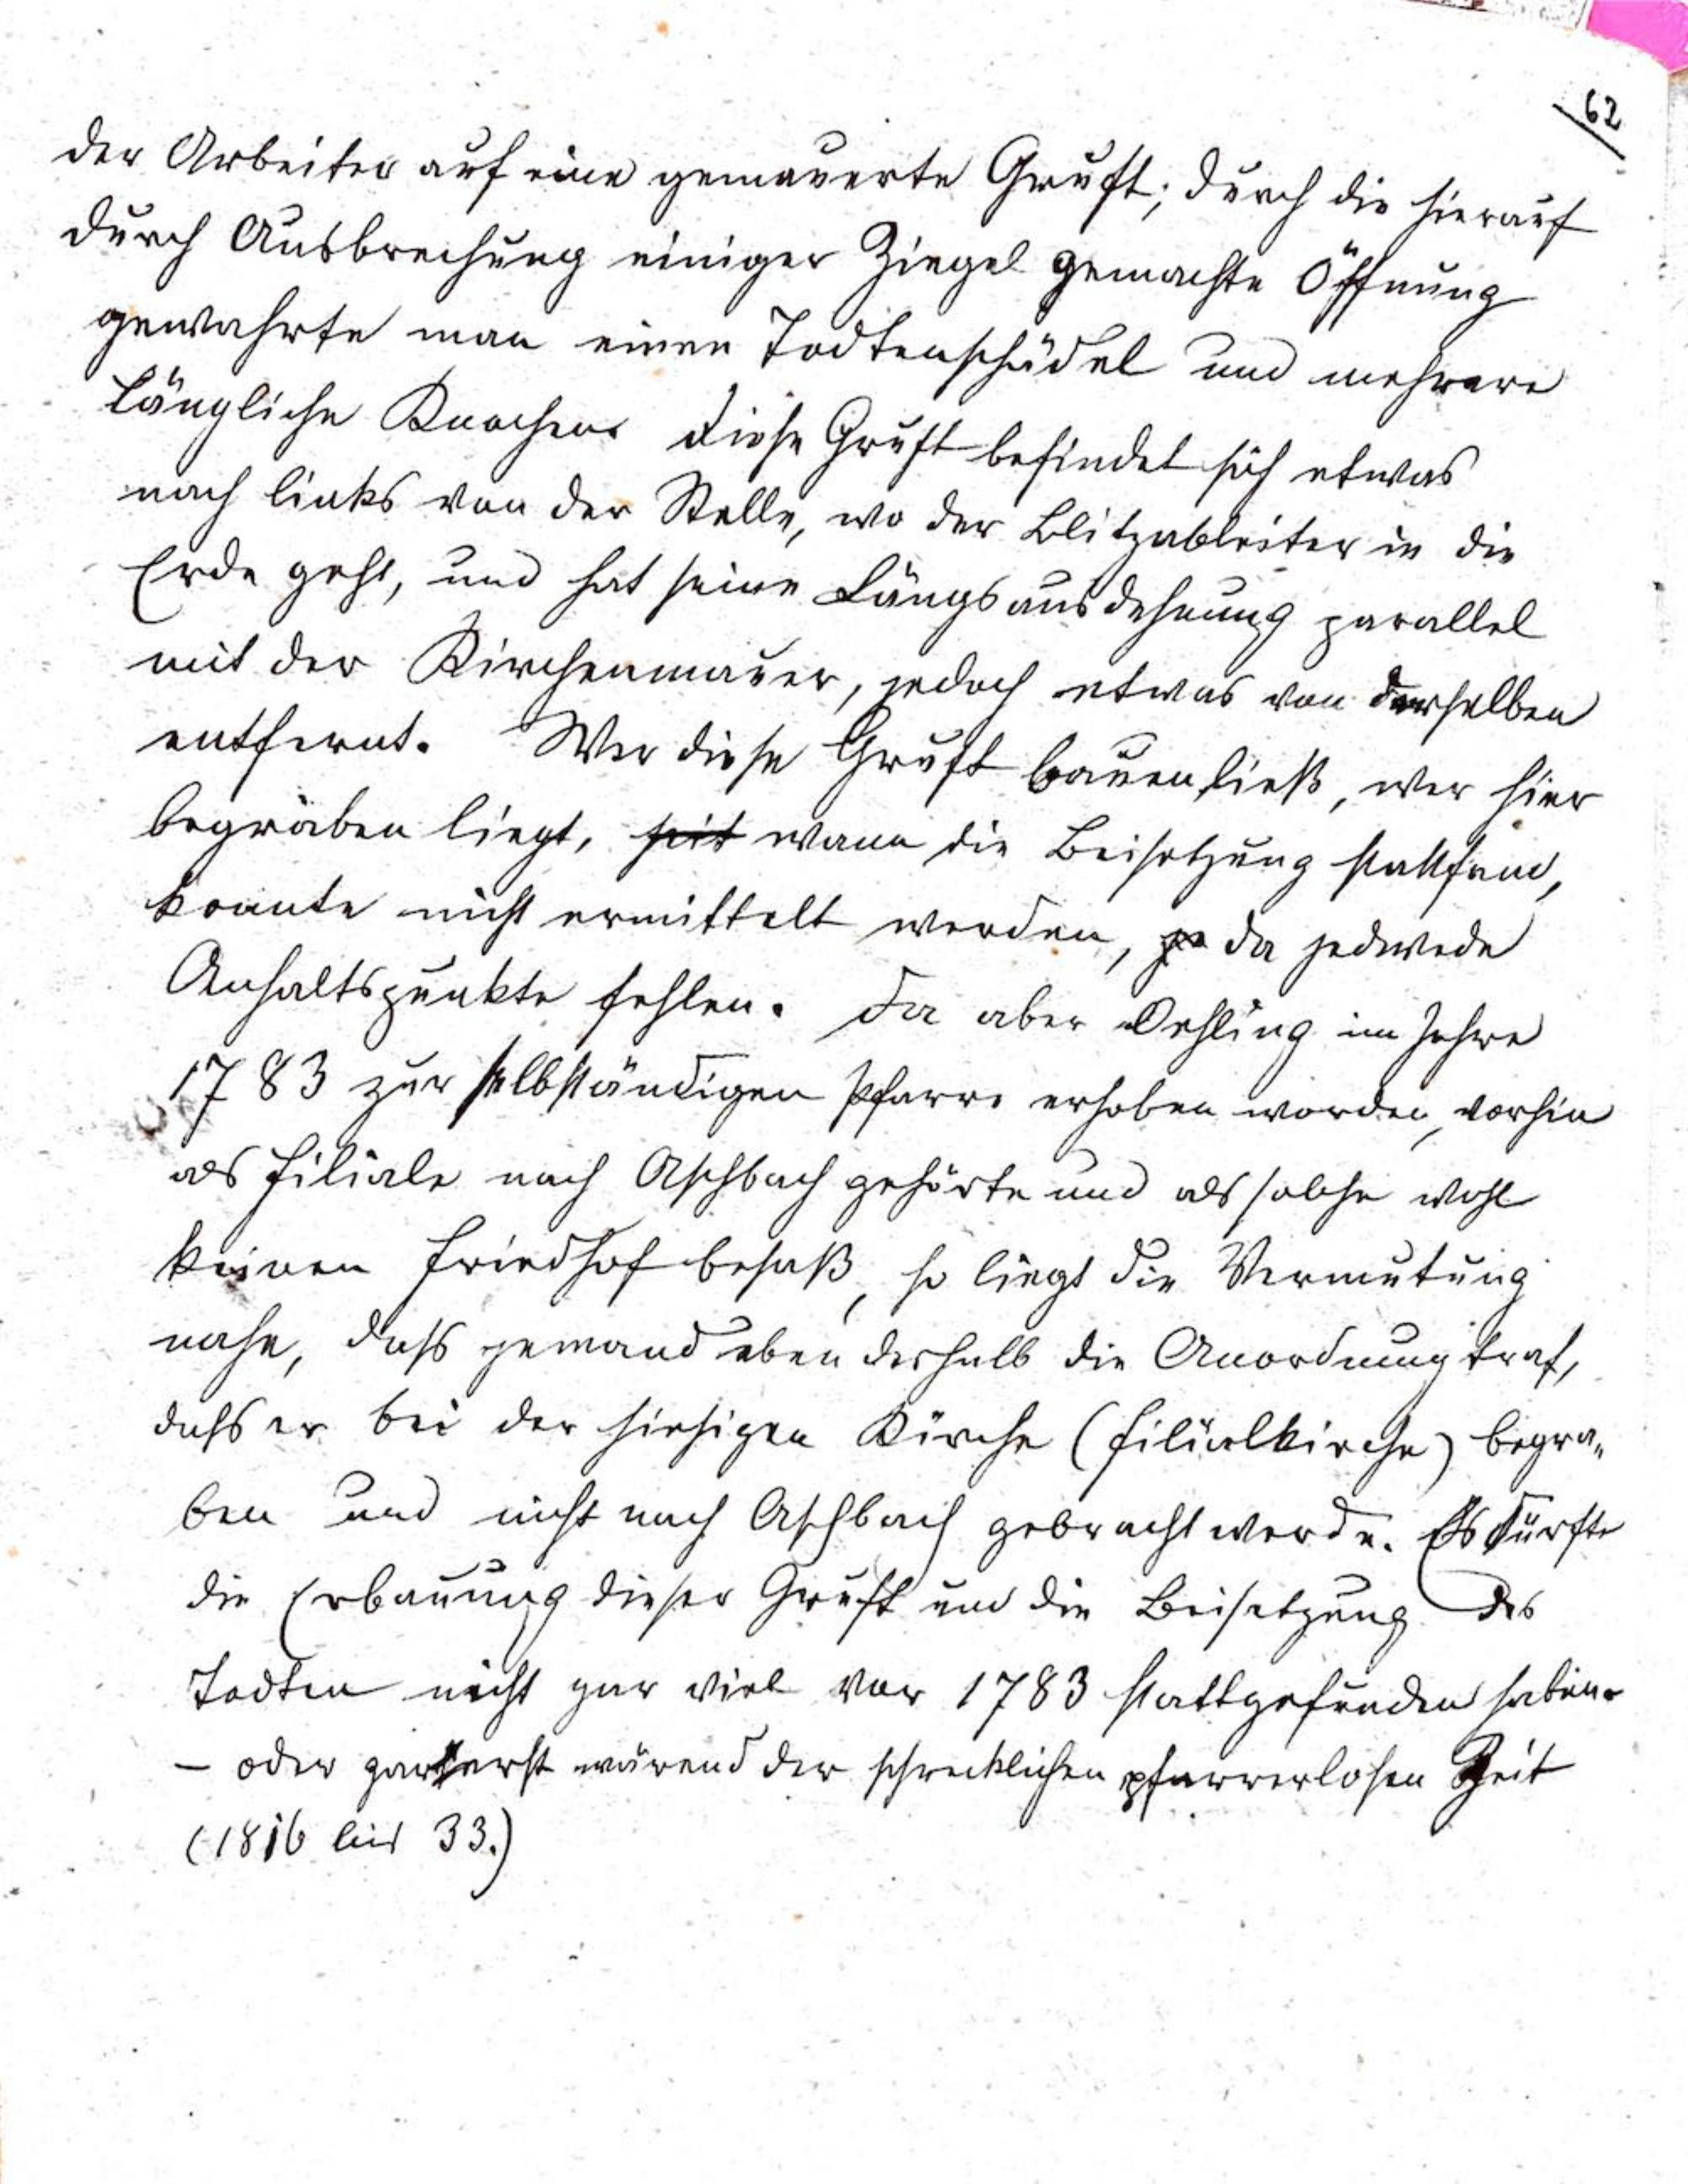 62
der Arbeiter auf eine gemauerte Gruft; durch die hierauf
durch Ausbrechung einiger Ziegel gemachte Öffnung
gewahrte man einen Todtenschädel und mehrere
längliche Knochen. Diese Gruft befindet sich etwas
nach links von der Stelle, wo der Blitzableiter in die
Erde geht, und hat seine Längsausdehnung parallel
mit der Kirchenmauer, jedoch etwas von derselben
entfernt. Wer diese Gruft bauen ließ, wer hier
begraben liegt, seit wann die Beisetzung stattfand,
konnte nicht ermittelt werden, je da jedwede
Anhaltspunkte fehlen. Da aber Oehling im Jahre
1783 zur selbständigen Pfarre erhoben worden, vorhin
als Filiale nach Aschbach gehörte und als solche wohl
keinen Friedhof besaß, so liegt die Vermutung
nahe, dass jemand eben deshalb die Anordnung traf,
dass er bei der hiesigen Kirche (Filialkirche) begra„
ben und nicht nach Aschbach gebracht werde. Es dürfte
die Erbauung dieser Gruft und die Beisetzung des
Todten nicht gar viel vor 1783 stattgefunden haben.
– oder gar erst wärend der schrecklichen pfarrerlosen Zeit
(1816 bis 33.)